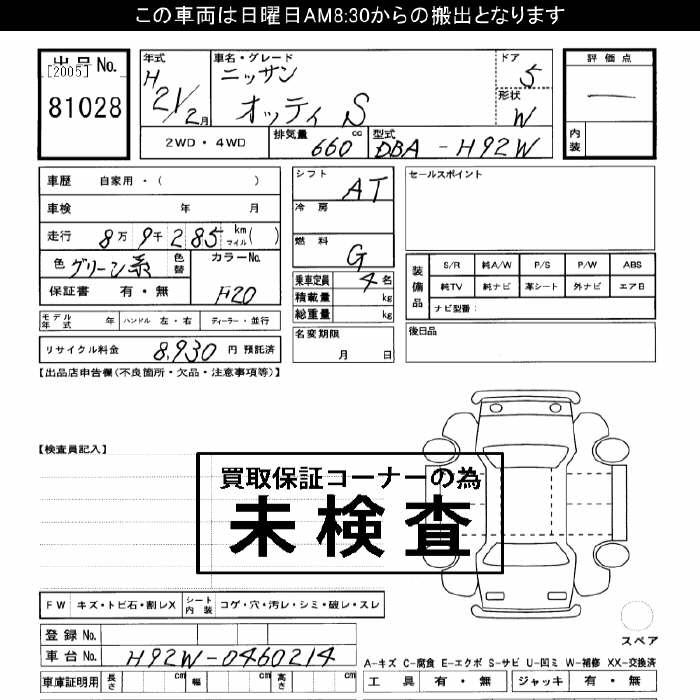 この車両は日曜日AM8:30からの搬出となります
出品No.
[2005]
81028
年式
H21/2月
車名・グレード
ニッサン
オッティ S
ドア
5
形状
W
評価点
―
内装
2WD・4WD
排気量 660 cc
型式 DBA-H92W
車歴 自家用・( )
車検 年 月
走行 8万9千285 km マイル ( )
色 グリーン系 色替
カラーNo.
H20
保証書 有・無
モデル年式 年 ハンドル 左・右 ディーラー・並行
リサイクル料金 8,930 円 預託済
シフト AT
冷房
燃料 G
乗車定員 4名
積載量 kg
総重量 kg
名変期限
月 日
セールスポイント
装備品
S/R 純A/W P/S P/W ABS
純TV 純ナビ 革シート 外ナビ エアB
ナビ型番:
後日品
【出品店申告欄(不良箇所・欠品・注意事項等)】
【検査員記入】
買取保証コーナーの為
未検査
FW キズ・トビ石・割レX シート内装 コゲ・穴・汚レ・シミ・破レ・スレ
スペア
登録No.
車台No. H92W-0460214
車庫証明用 長さ cm 幅 cm 高さ cm
A-キズ C-腐食 E-エクボ S-サビ U-凹ミ W-補修 XX-交換済
工具 有・無 ジャッキ 有・無